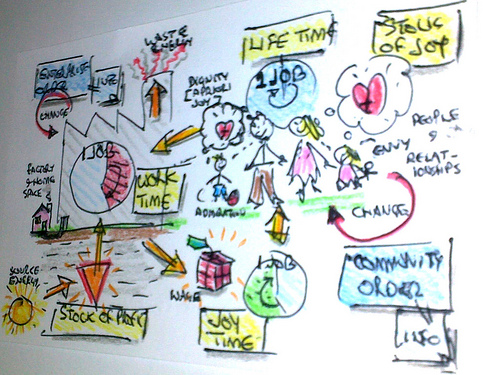 WASTE
ENERGY
LIFE TIME
STOCK
OF JOY
ENTERPRISE
INFO
DIGNITY
JOY
1 JOB
CHANGE
PEOPLE
&
RELAT-
IONSHIPS
ENVY
1 JOB
FACTORY
& HOME
SPACE
WORK
TIME
ADMIRATION
CHANGE
SOURCE
ENERGY
WAGE
1 JOB
COMMUNITY
ORDER
STOCK OF PROFIT
JOY
TIME
INFO